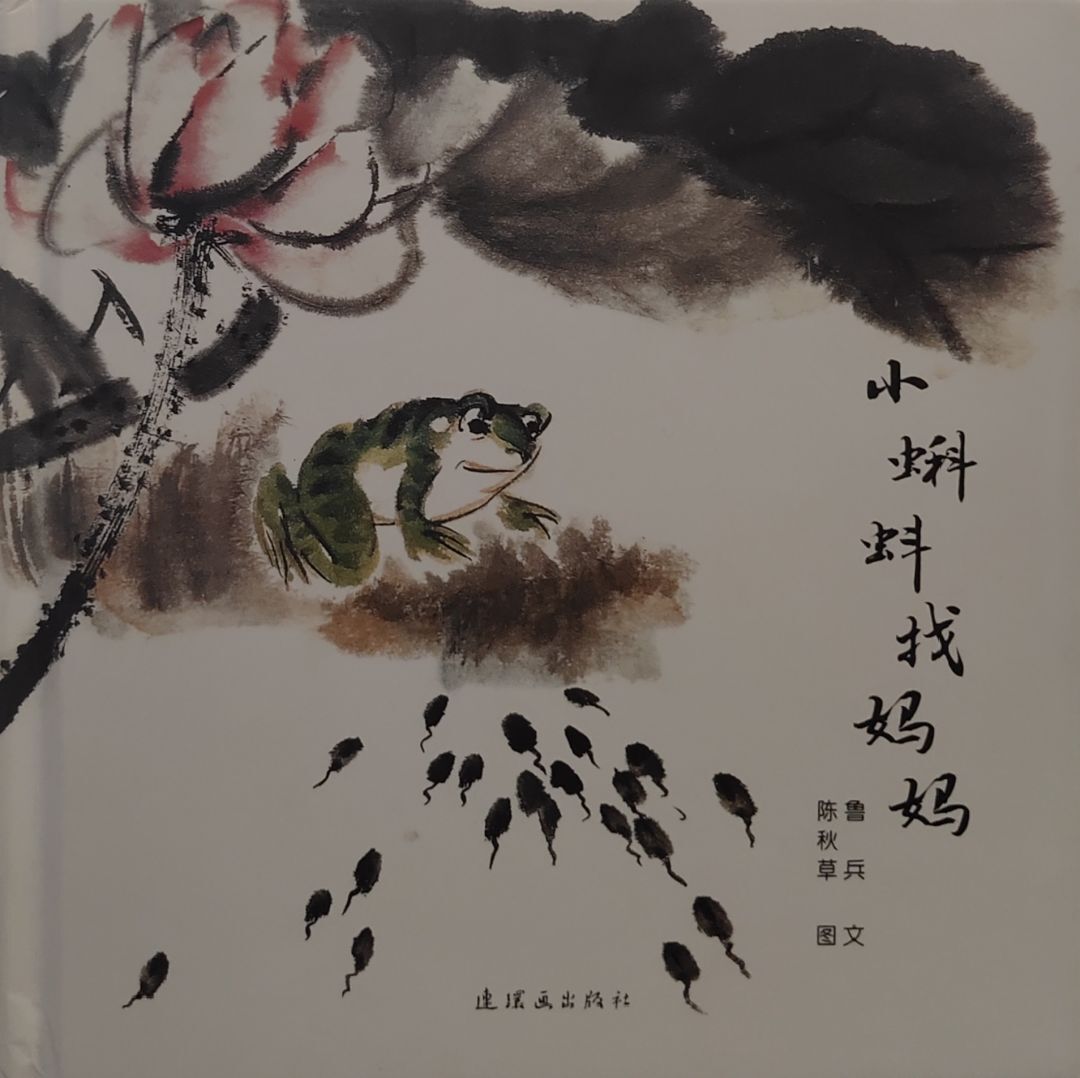 小蝌蚪找妈妈
鲁兵 文
陈秋草 图
连环画出版社